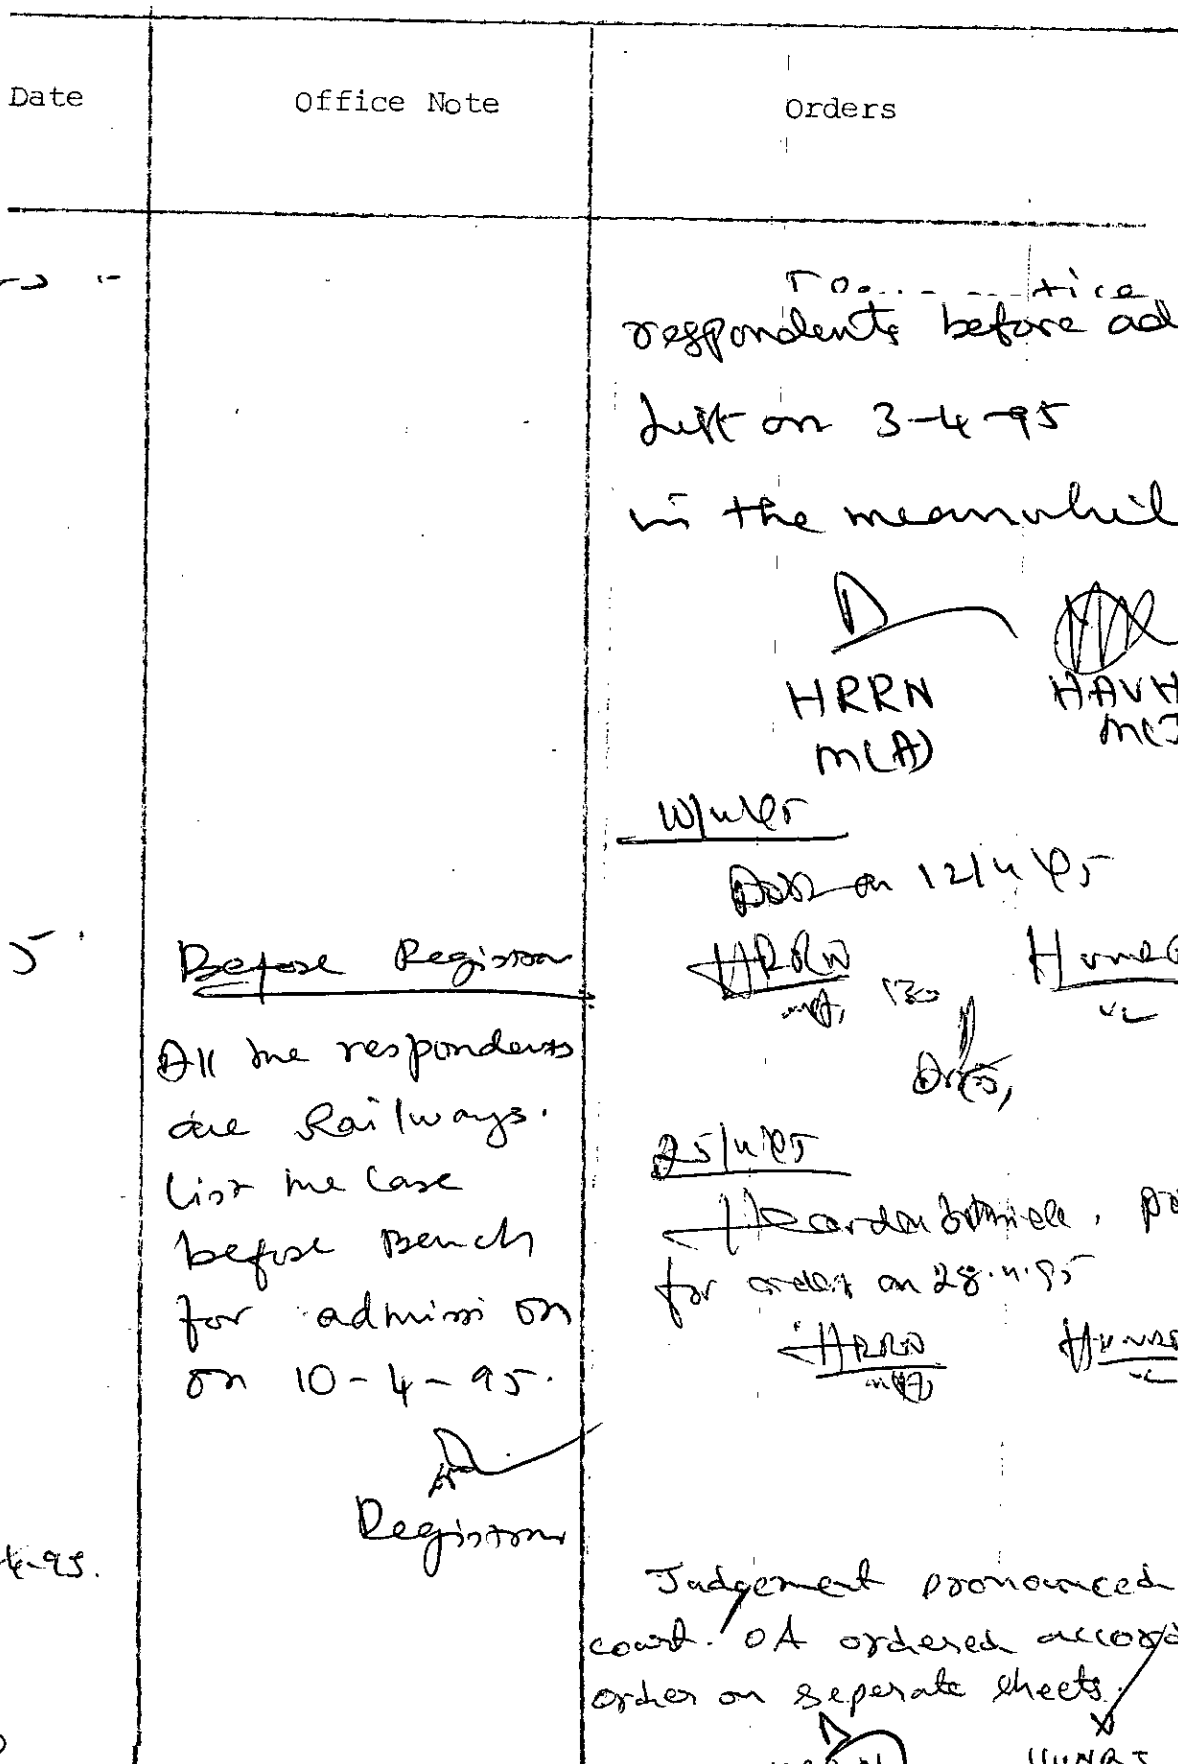 Date Office Note Orders
respondents before ad
List on 3-4-95
in the meanwhil
HRRN HAVH
M(A) M(J
on 12/4/95
HRRN
Before Registrar
All the respondents
are Railways.
List the Case
before Bench
for admission
on 10-4-95.
Registrar
25/4/95
Heard on bothside. po
for orders on 28.4.95
HRRN
4-95.
Judgement pronounced
court. OA ordered accord
order on seperate sheets.